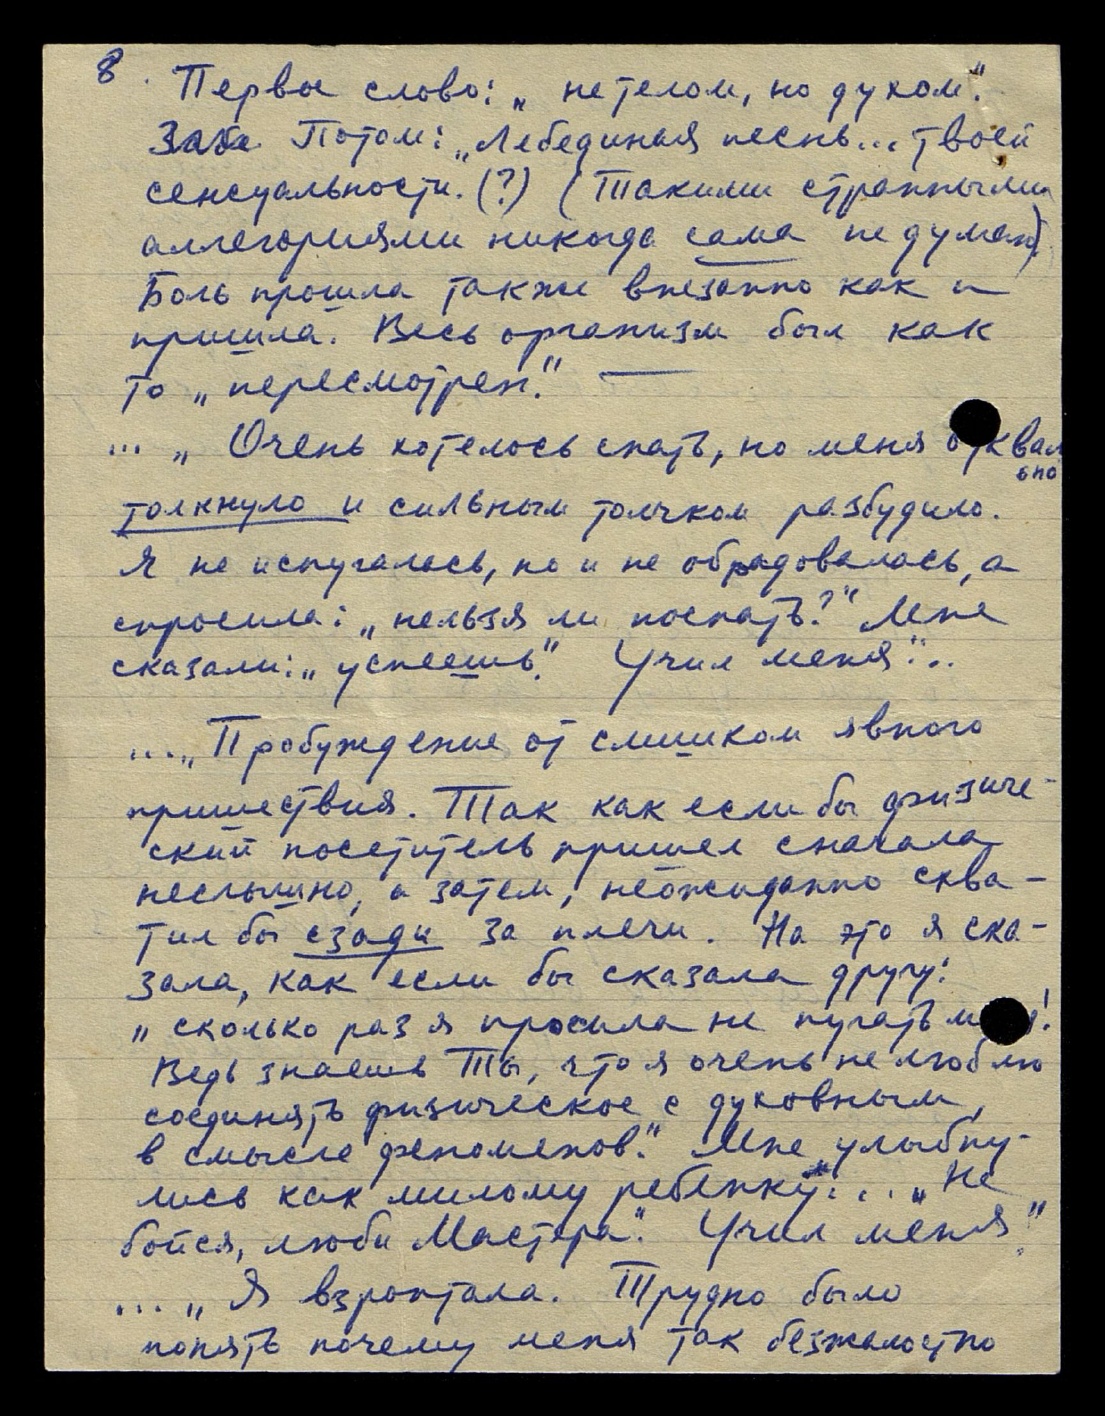 8. Первое слово: „не телом, но духом".
Потом: „Лебединая песнь... твоей
сенсуальности. (?) (Такими странными
аллегориями никогда сама не думаю).
Боль прошла также внезапно как и
пришла. Весь организм был как
то „пересмотрен."
... „Очень хотелось спать, но меня буквально
толкнуло и сильным толчком разбудило.
Я не испугалась, но и не обрадовалась, а
спросила: „нельзя ли поспать?" Мне
сказали: „успеешь". Учил меня"...
...„Пробуждение от слишком явного
пришествия. Так как если бы физиче-
ский посетитель пришел сначала
неслышно, а затем, неожиданно схва-
тил бы сзади за плечи. На это я ска-
зала, как если бы сказала другу:
„сколько раз я просила не пугать меня!
Ведь знаешь Ты, что я очень не люблю
соединять физическое с духовным,
в смысле феноменов." Мне улыбну-
лись как милому ребенку:... „Не
бойся, люби Мастера". Учил меня"
... „Я взроптала. Трудно было
понять почему меня так безжалостно